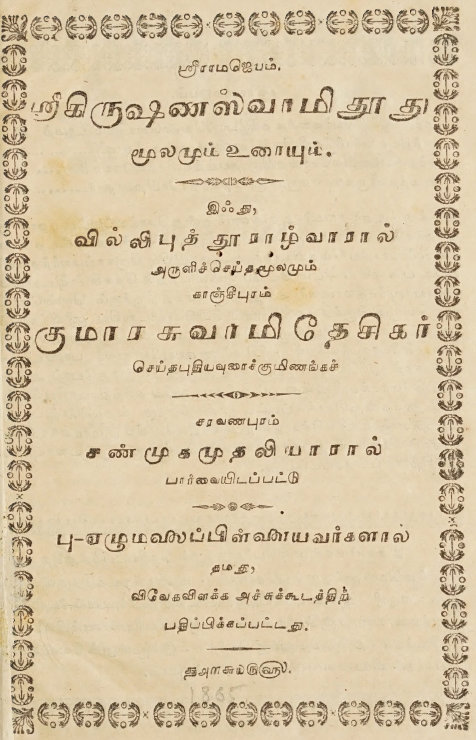 ஸ்ரீராமஜெயம்.
ஸ்ரீகிருஷணஸ்வாமி தூது
மூலமும் உரையும்.
இஃது,
வில்லிபுத்தூராழ்வாரால்
அருளிச்செய்தமூலமும்
காஞ்சீபுரம்
குமாரசுவாமி தேசிகர்
செய்தபுதியவுரைக்குமிணங்கச்
சரவணபுரம்
சண்முகமுதலியாரால்
பார்வையிடப்பட்டு
பு-ஏழுமலைப்பிள்ளையவர்களால்
தமது,
விவேகவிளக்க அச்சுக்கூடத்திற்
பதிப்பிக்கப்பட்டது.
1865